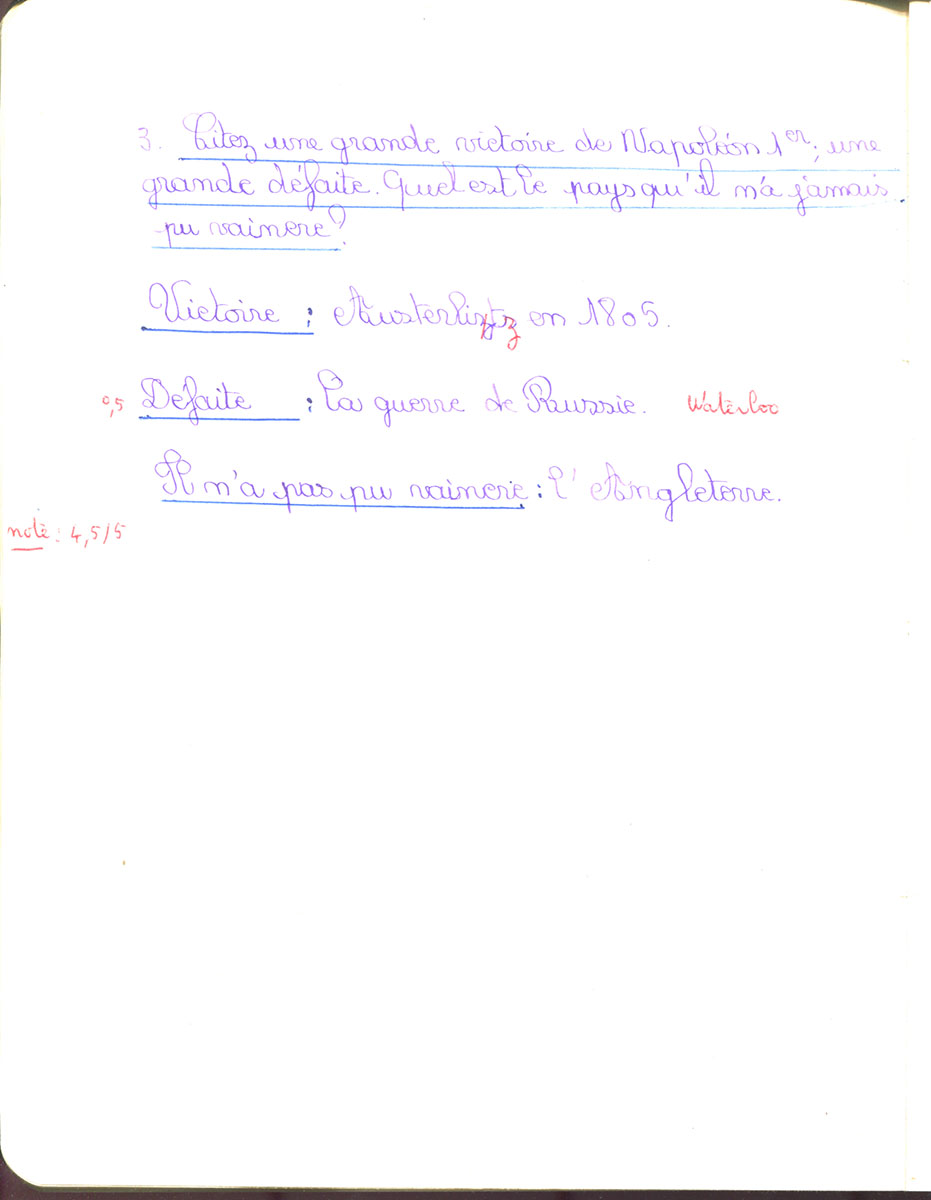 3. Citez une grande victoire de Napoléon 1er; une
grande défaite. Quel est le pays qu'il n'a jamais
pu vaincre?
Victoire : Austerlitz en 1805.
0,5 Défaite : la guerre de Russie. Waterloo
Il n'a pas pu vaincre : l'Angleterre.
note : 4,5/5